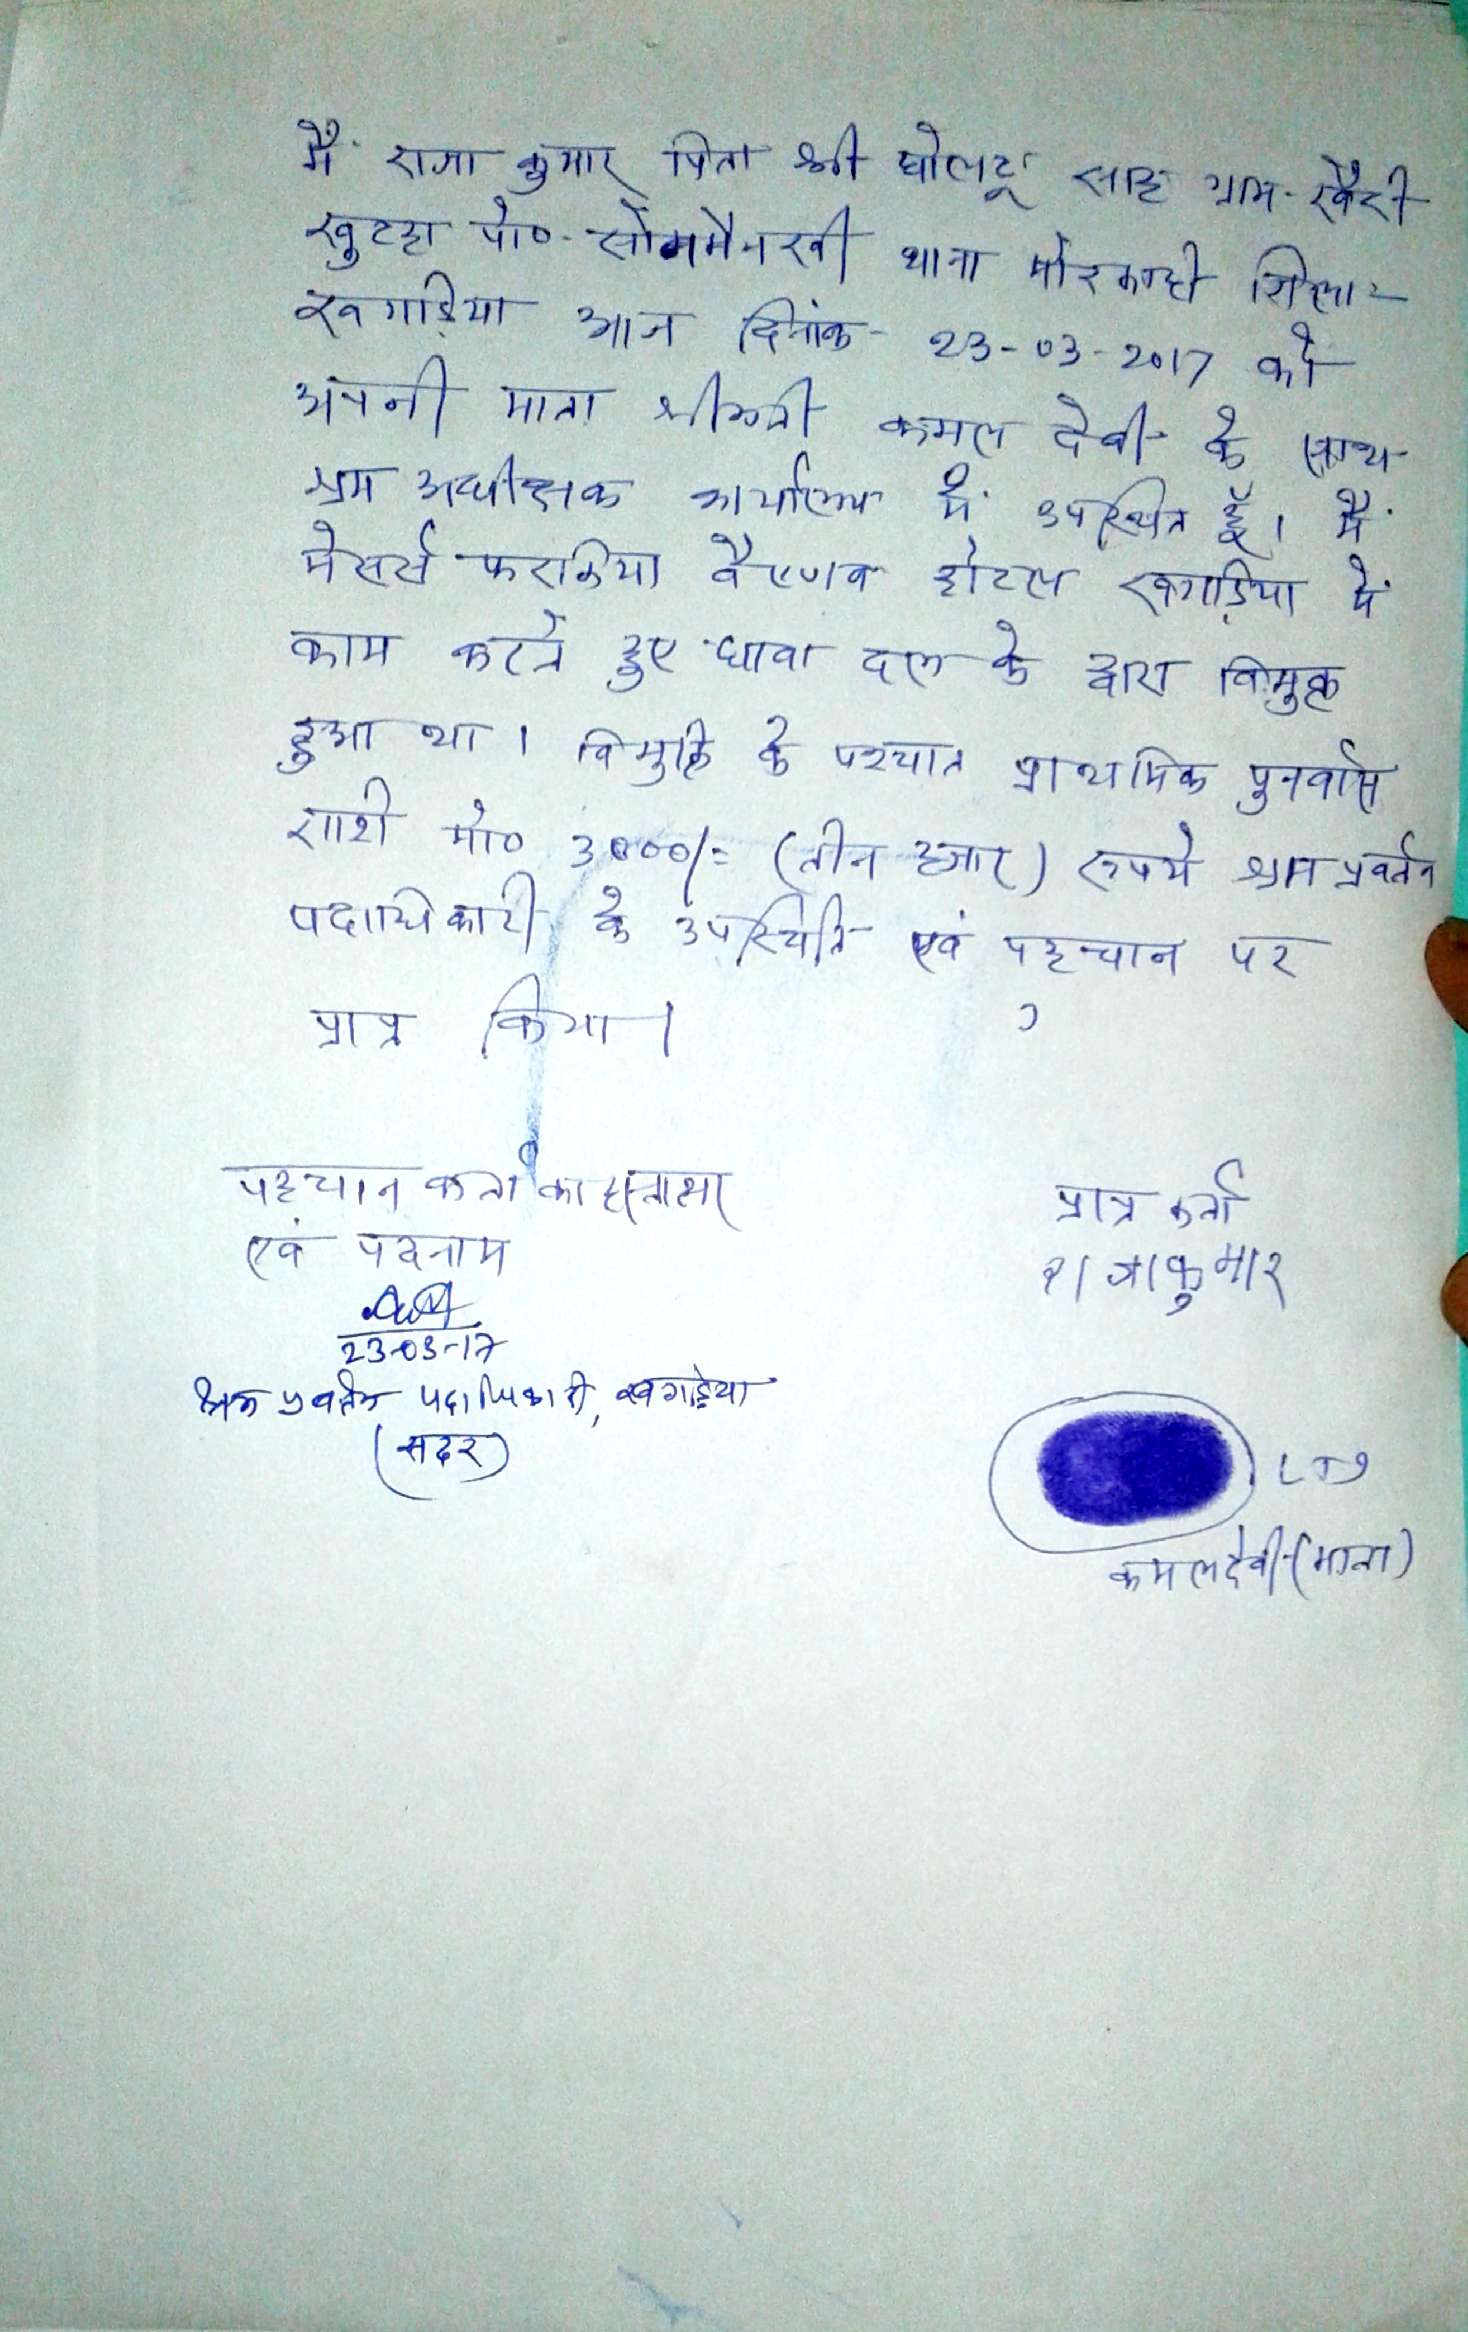 मैं राजा कुमार पिता श्री घोलटू साह ग्राम- खैरी
खुटहा पो०- थाना मोरकाही जिला-
खगड़िया आज दिनांक- 23-03-2017 को
अपनी माता श्रीमती कमल देवी के साथ
श्रम अधीक्षक कार्यालय में उपस्थित हूँ। मैं
मेसर्स फरकिया वैष्णव होटल खगड़िया में
काम करते हुए धावा दल के द्वारा विमुक्त
हुआ था। विमुक्ति के पश्चात प्राथमिक पुनर्वास
राशी मो० 3000/= (तीन हजार) रूपये श्रम प्रवर्तन
पदाधिकारी के उपस्थिति एवं पहचान पर
प्राप्त किया।
पहचान कर्ता का हस्ताक्षर
एवं पदनाम
23-03-17
श्रम प्रवर्तन पदाधिकारी, खगड़िया
(सदर)
प्राप्त कर्ता
राजाकुमार
LTI
कमलदेवी-(माता)